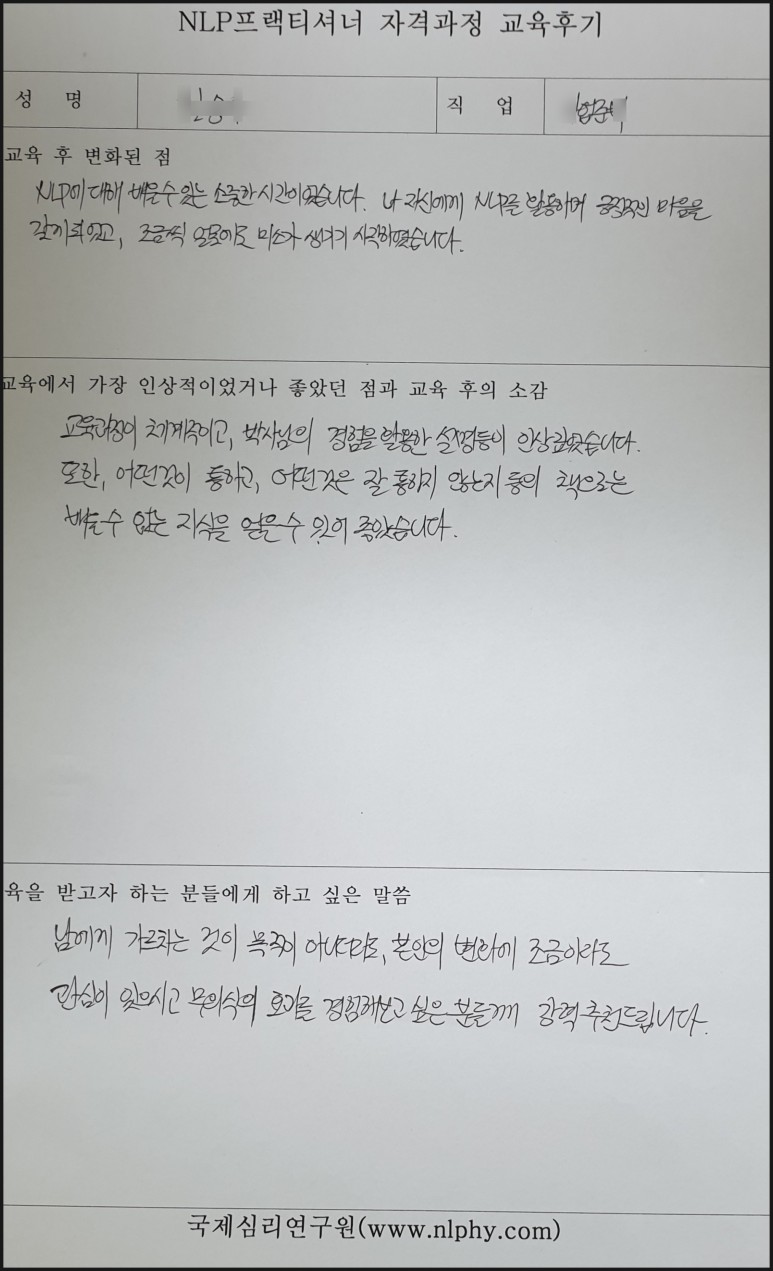 NLP프랙티셔너 자격과정 교육후기
성 명
직 업
교육 후 변화된 점
NLP에 대해 배울 수 있는 소중한 시간이었습니다. 나 자신에게 NLP를 활용하며 긍정적인 마음을
갖게 되었고, 조금씩 얼굴에도 미소가 생기기 시작하였습니다.
교육에서 가장 인상적이었거나 좋았던 점과 교육 후의 소감
교육과정이 체계적이고, 박사님의 경험을 활용한 설명등이 인상깊었습니다.
또한, 어떤것이 통하고, 어떤것은 잘 통하지 않는지 등의 책으로는
배울 수 없는 지식을 얻을 수 있어 좋았습니다.
육을 받고자 하는 분들에게 하고 싶은 말씀
남에게 가르치는 것이 목적이 아니더라도, 본인의 변화에 조금이라도
관심이 있으시고 무의식의 효과를 경험해보고 싶은 분들께 강력 추천드립니다.
국제심리연구원(www.nlphy.com)